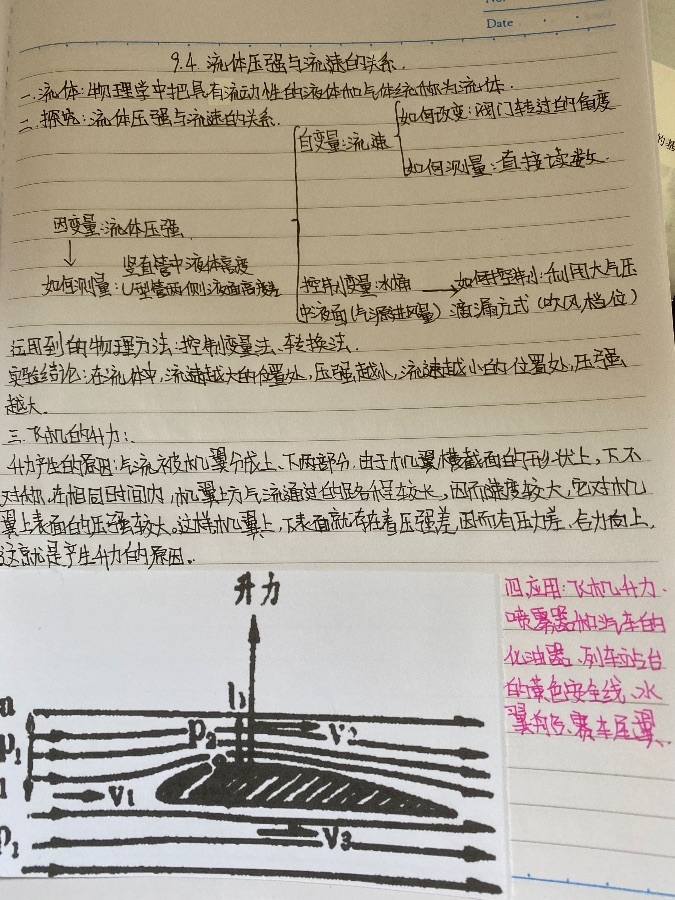 Date
9.4 流体压强与流速的关系.
一.流体:物理学中把具有流动性的液体和气体统称为流体.
二.探究:流体压强与流速的关系.
自变量:流速
如何改变:阀门转过的角度
如何测量:直接读数.
因变量:流体压强
↓
如何测量:
竖直管中液体高度
U型管两侧液面高度差
控制变量:水桶
中液面(气源进风量)
如何控制:利用大气压
滴漏方式(吹风档位)
运用到的物理方法:控制变量法、转换法.
实验结论:在流体中,流速越大的位置处,压强越小,流速越小的位置处,压强
越大.
三.飞机的升力:.
升力产生的原因:气流被机翼分成上、下两部分,由于机翼横截面的形状上,下不
对称,在相同时间内,机翼上方气流通过的路程较长,因而速度较大,它对机
翼上表面的压强较大.这样机翼上,下表面就存在着压强差,因而有压力差,合力向上,
这就是产生升力的原因.
四.应用:飞机升力.
喷雾器和汽车的
化油器、列车站台
的黄色安全线、水
翼船、赛车尾翼.
升力
p₂
v₂
p₁
v₁
v₃
p₁